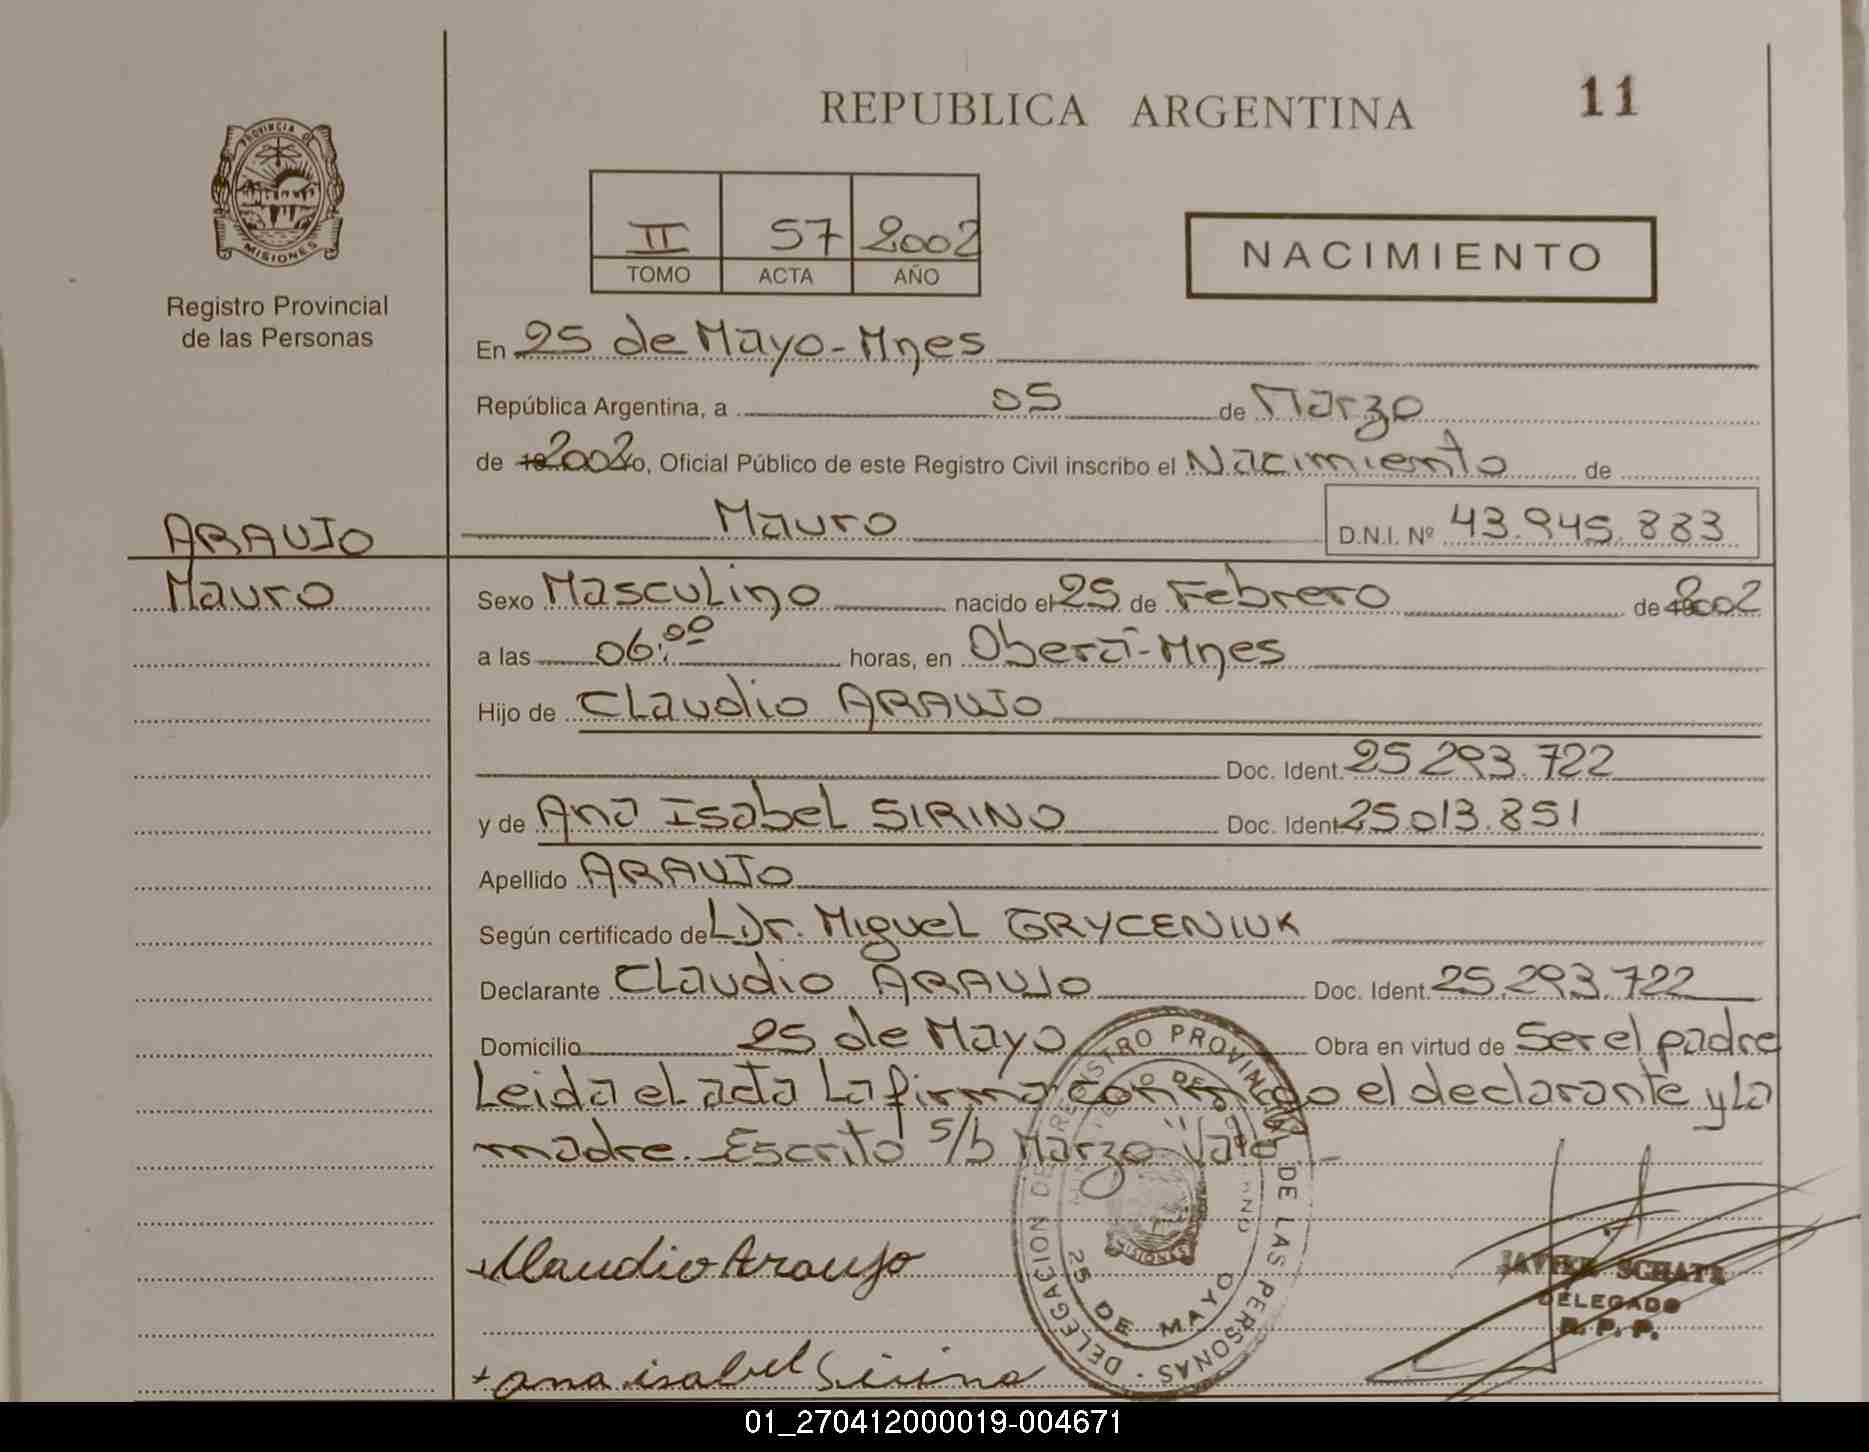 REPUBLICA ARGENTINA
11
PROVINCIA DE
MISIONES
Registro Provincial
de las Personas
II 57 2002
TOMO ACTA AÑO
NACIMIENTO
En 25 de Mayo-Mnes
República Argentina, a 05 de Marzo
de 2002 yo, Oficial Público de este Registro Civil inscribo el Nacimiento de
Mauro D.N.I. Nº 43.945.883
ARAUJO
Mauro
Sexo Masculino nacido el 25 de Febrero de 2002
a las 06:00 horas, en Oberá-Mnes
Hijo de Claudio ARAUJO
Doc. Ident. 25.293.722
y de Ana Isabel SIRINO Doc. Ident 25.013.851
Apellido ARAUJO
Según certificado de L Dr. Miguel GRYCENIUK
Declarante Claudio ARAUJO Doc. Ident. 25.293.722
Domicilio 25 de Mayo Obra en virtud de Ser el padre
Leida el acta La firma conmigo el declarante y La
madre. Escrito s/b Marzo "Vale"
REGISTRO PROVINCIAL DE LAS PERSONAS · DELEGACION DE
25 DE MAYO
MISIONES
Claudio Araujo
JAVIER SCHATZ
DELEGADO
R. P. P.
ana isabel Sirino
01_270412000019-004671